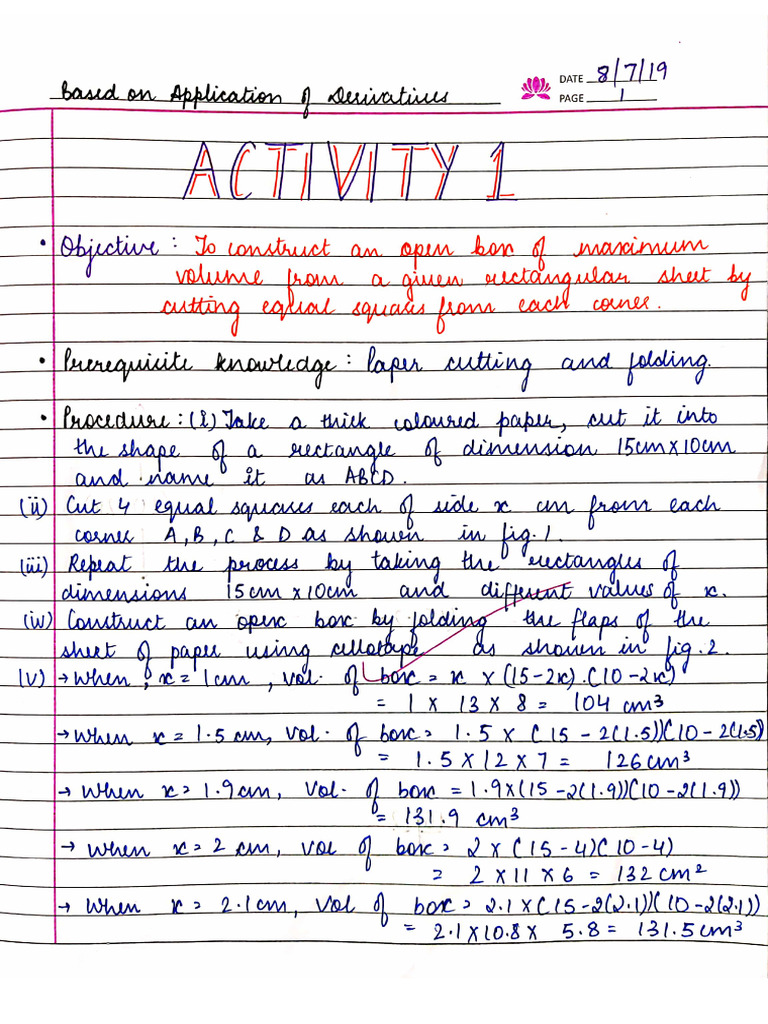 Based on Application of Derivatives
DATE 8/7/19
PAGE 1
ACTIVITY 1
• Objective : To construct an open box of maximum
volume from a given rectangular sheet by
cutting equal squares from each corner.
• Prerequisite knowledge : Paper cutting and folding.
• Procedure : (i) Take a thick coloured paper, cut it into
the shape of a rectangle of dimension 15cm x 10cm
and name it as ABCD.
(ii) Cut 4 equal squares each of side x cm from each
corner A, B, C & D as shown in fig. 1.
(iii) Repeat the process by taking the rectangles of
dimensions 15cm x 10cm and different values of x.
(iv) Construct an open box by folding the flaps of the
sheet of paper using cellotape as shown in fig. 2.
(v) → When, x = 1cm, vol. of box = x × (15-2x).(10-2x)
= 1 × 13 × 8 = 104 cm³
→ When x = 1.5 cm, vol. of box = 1.5 × (15 - 2(1.5))(10 - 2(1.5)
= 1.5 × 12 × 7 = 126 cm³
→ When x = 1.9 cm, vol. of box = 1.9×(15-2(1.9))(10-2(1.9))
= 131.9 cm³
→ When x = 2 cm, vol of box = 2 × (15-4)(10-4)
= 2 × 11 × 6 = 132 cm²
→ When x = 2.1cm, vol of box = 2.1×(15-2(2.1))(10-2(2.1))
= 2.1 × 10.8 × 5.8 = 131.5 cm³